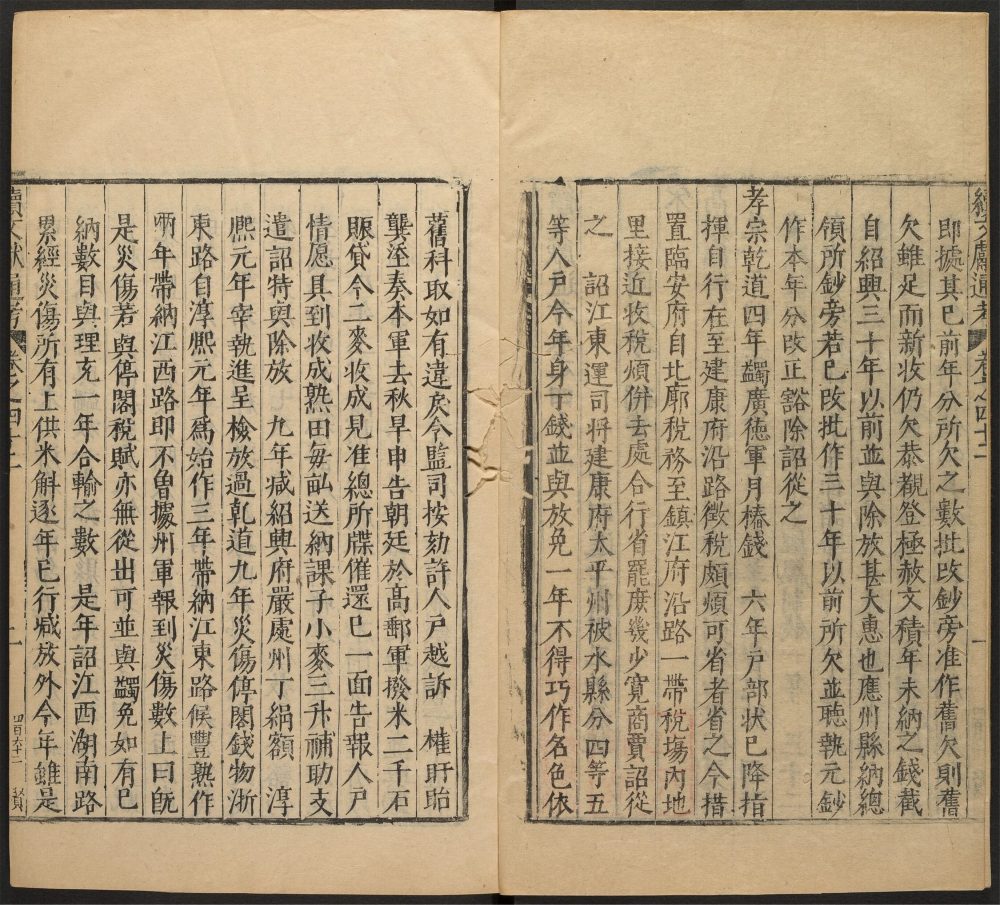 續文獻通考 卷之四十二 一
即據其已前年分所欠之數批改鈔旁准作舊欠則舊
欠雖足而新收仍欠恭覩登極赦文積年未納之錢截
自紹興三十年以前並與除放甚大惠也應州縣納總
領所鈔旁若已改批作三十年以前所欠並聽執元鈔
作本年分改正豁除詔從之
孝宗乾道四年蠲廣德軍月樁錢 六年戸部狀已降指
揮自行在至建康府沿路徵稅頗煩可省者省之今措
置臨安府自北廓稅務至鎮江府沿路一帶稅塲內地
里接近收稅煩併去處合行省罷庶幾少寛商賈詔從
之 詔江東運司將建康府太平州被水縣分四等五
等人戸今年身丁錢並與放免一年不得巧作名色依
舊科取如有違戾令監司按劾許人戸越訴 權盱眙
龔鋈奏本軍去秋旱申告朝廷於高郵軍撥米二千石
賑貸今二麥收成見准總所牒催還已一面告報人戸
情愿具到收成熟田毎畝送納課子小麥三升補助支
遣詔特與除放 九年减紹興府嚴處州丁絹額 淳
熈元年宰執進呈檢放過乾道九年災傷停閣錢物浙
東路自淳熈元年爲始作三年帶納江東路候豐熟作
兩年帶納江西路即不曽據州軍報到災傷數上曰旣
是災傷若與停閣稅賦亦無從出可並與蠲免如有已
納數目與理充一年合輸之數 是年詔江西湖南路
累經災傷所有上供米斛逐年已行减放外今年雖是
續文獻通考 卷之四十二 二